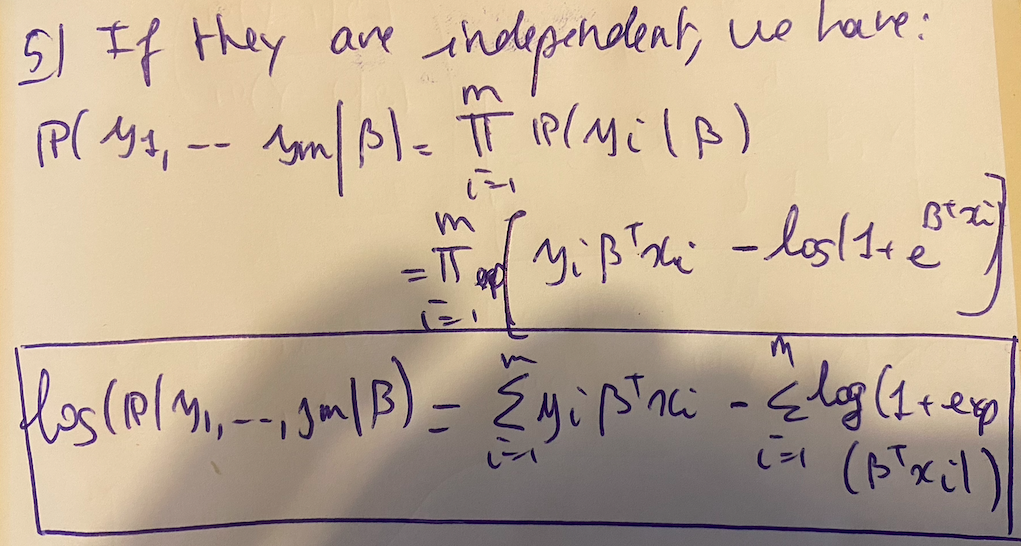 5) If they are independent, we have:
ℙ(y₁, -- yₘ|β) = ∏ᵢ₌₁ᵐ ℙ(yᵢ|β)
= ∏ᵢ₌₁ᵐ exp[yᵢ βᵀxᵢ - log(1+ e^{βᵀxᵢ})]
log(ℙ(y₁, --, yₘ|β) = ∑ᵢ₌₁ᵐ yᵢ βᵀxᵢ - ∑ᵢ₌₁ᵐ log(1+exp
(βᵀxᵢ))